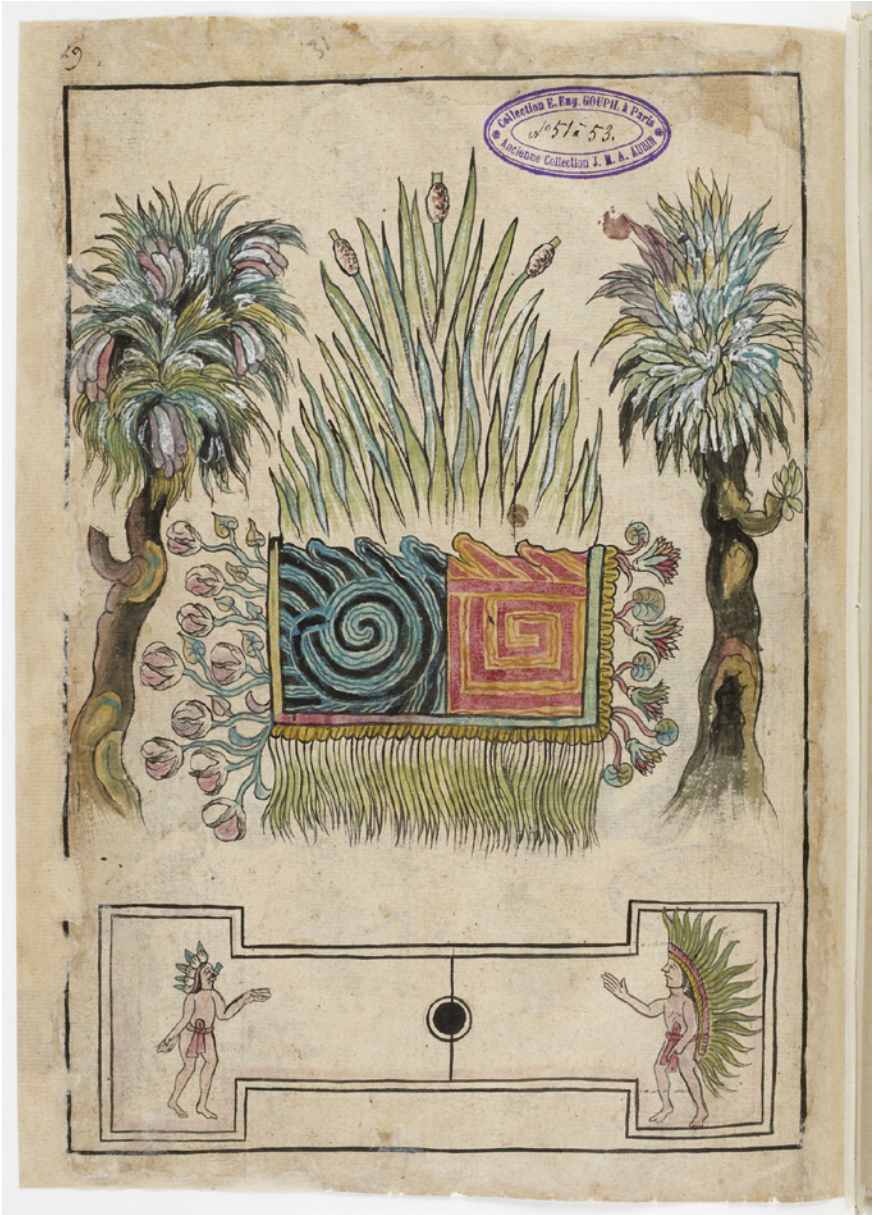 29
31
Collection E. Eug. GOUPIL à Paris
Nº 51 à 53.
Ancienne Collection J. M. A. AUBIN